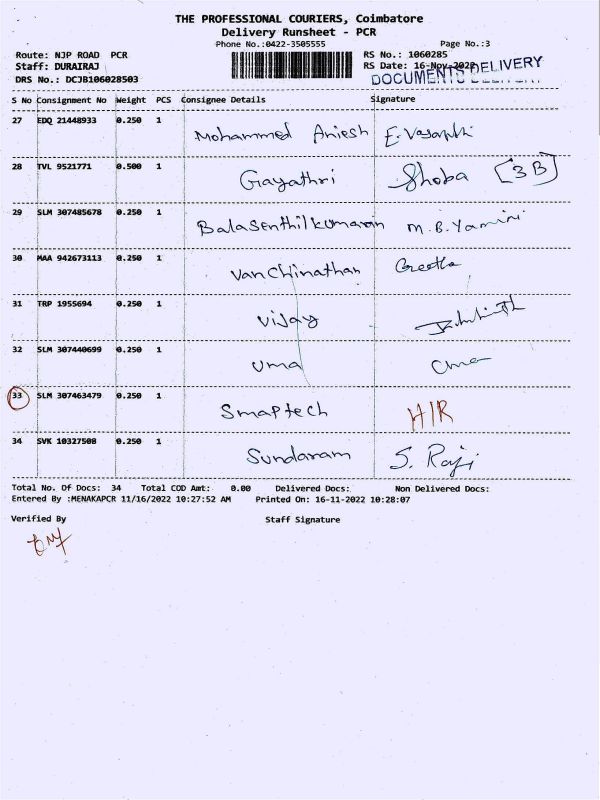 THE PROFESSIONAL COURIERS, Coimbatore
Delivery Runsheet - PCR
Phone No.:0422-3505555 Page No.:3
Route: NJP ROAD PCR RS No.: 1060285
Staff: DURAIRAJ RS Date: 16-Nov-2022
DRS No.: DCJB106028503 DOCUMENTS DELIVERY
S No Consignment No Weight PCS Consignee Details Signature
27 EDQ 21448933 0.250 1 Mohammed Aniesh E. Vasanthi
28 TVL 9521771 0.500 1 Gayathri Shoba [3B]
29 SLM 307485678 0.250 1 Balasenthilkumaran M.B.Yamini
30 MAA 942673113 0.250 1 Vanchinathan Geetha
31 TRP 1955694 0.250 1 Vijay
32 SLM 307440699 0.250 1 Uma Uma
33 SLM 307463479 0.250 1 Smaptech H/R
34 SVK 10327508 0.250 1 Sundaram S. Raji
Total No. Of Docs: 34 Total COD Amt: 0.00 Delivered Docs: Non Delivered Docs:
Entered By :MENAKAPCR 11/16/2022 10:27:52 AM Printed On: 16-11-2022 10:28:07
Verified By Staff Signature